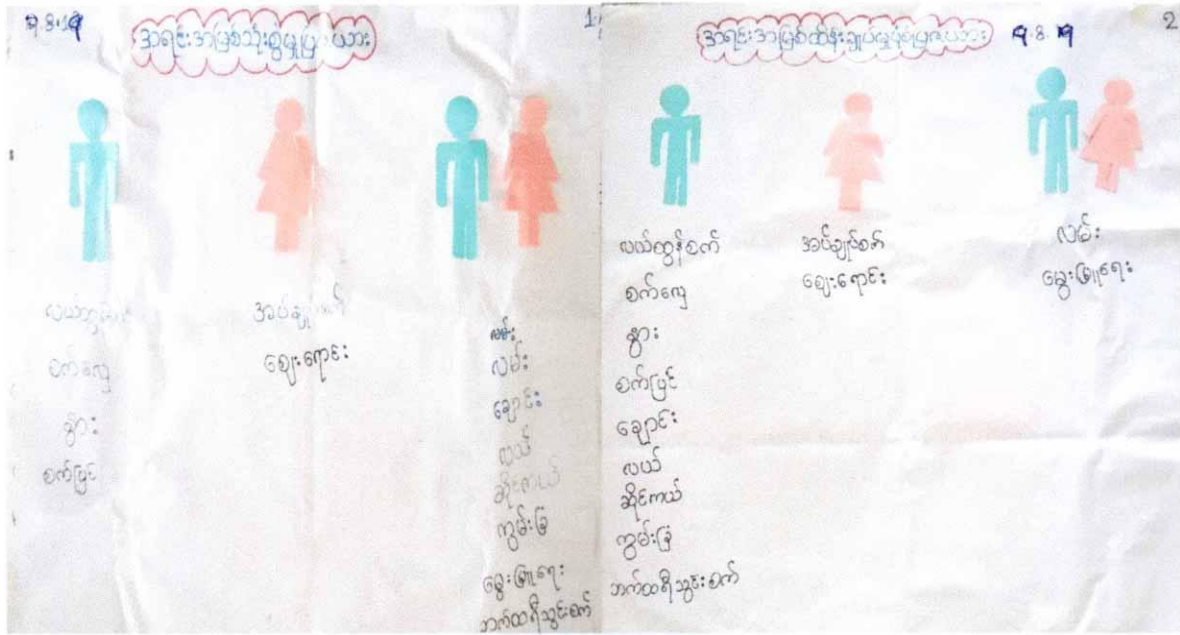 ၅.8.19
1
အရင်းအမြစ်သုံးစွဲမှုပြဇယား
လယ်ထွန်စက်
စက်လှေ
နွား
စက်ပြင်
အပ်ချုပ်စက်
ဈေးရောင်း
လမ်း
လမ်း
ချောင်း
လယ်
ဆိုင်ကယ်
ကွမ်းခြံ
မွေးမြူရေး
ဘက်ထရီသွင်းစက်
အရင်းအမြစ်ထိန်းချုပ်မှုပုံစံပြဇယား
9.8.19
2
လယ်ထွန်စက်
စက်လှေ
နွား
စက်ပြင်
ချောင်း
လယ်
ဆိုင်ကယ်
ကွမ်းခြံ
ဘက်ထရီသွင်းစက်
အပ်ချုပ်စက်
ဈေးရောင်း
လမ်း
မွေးမြူရေး